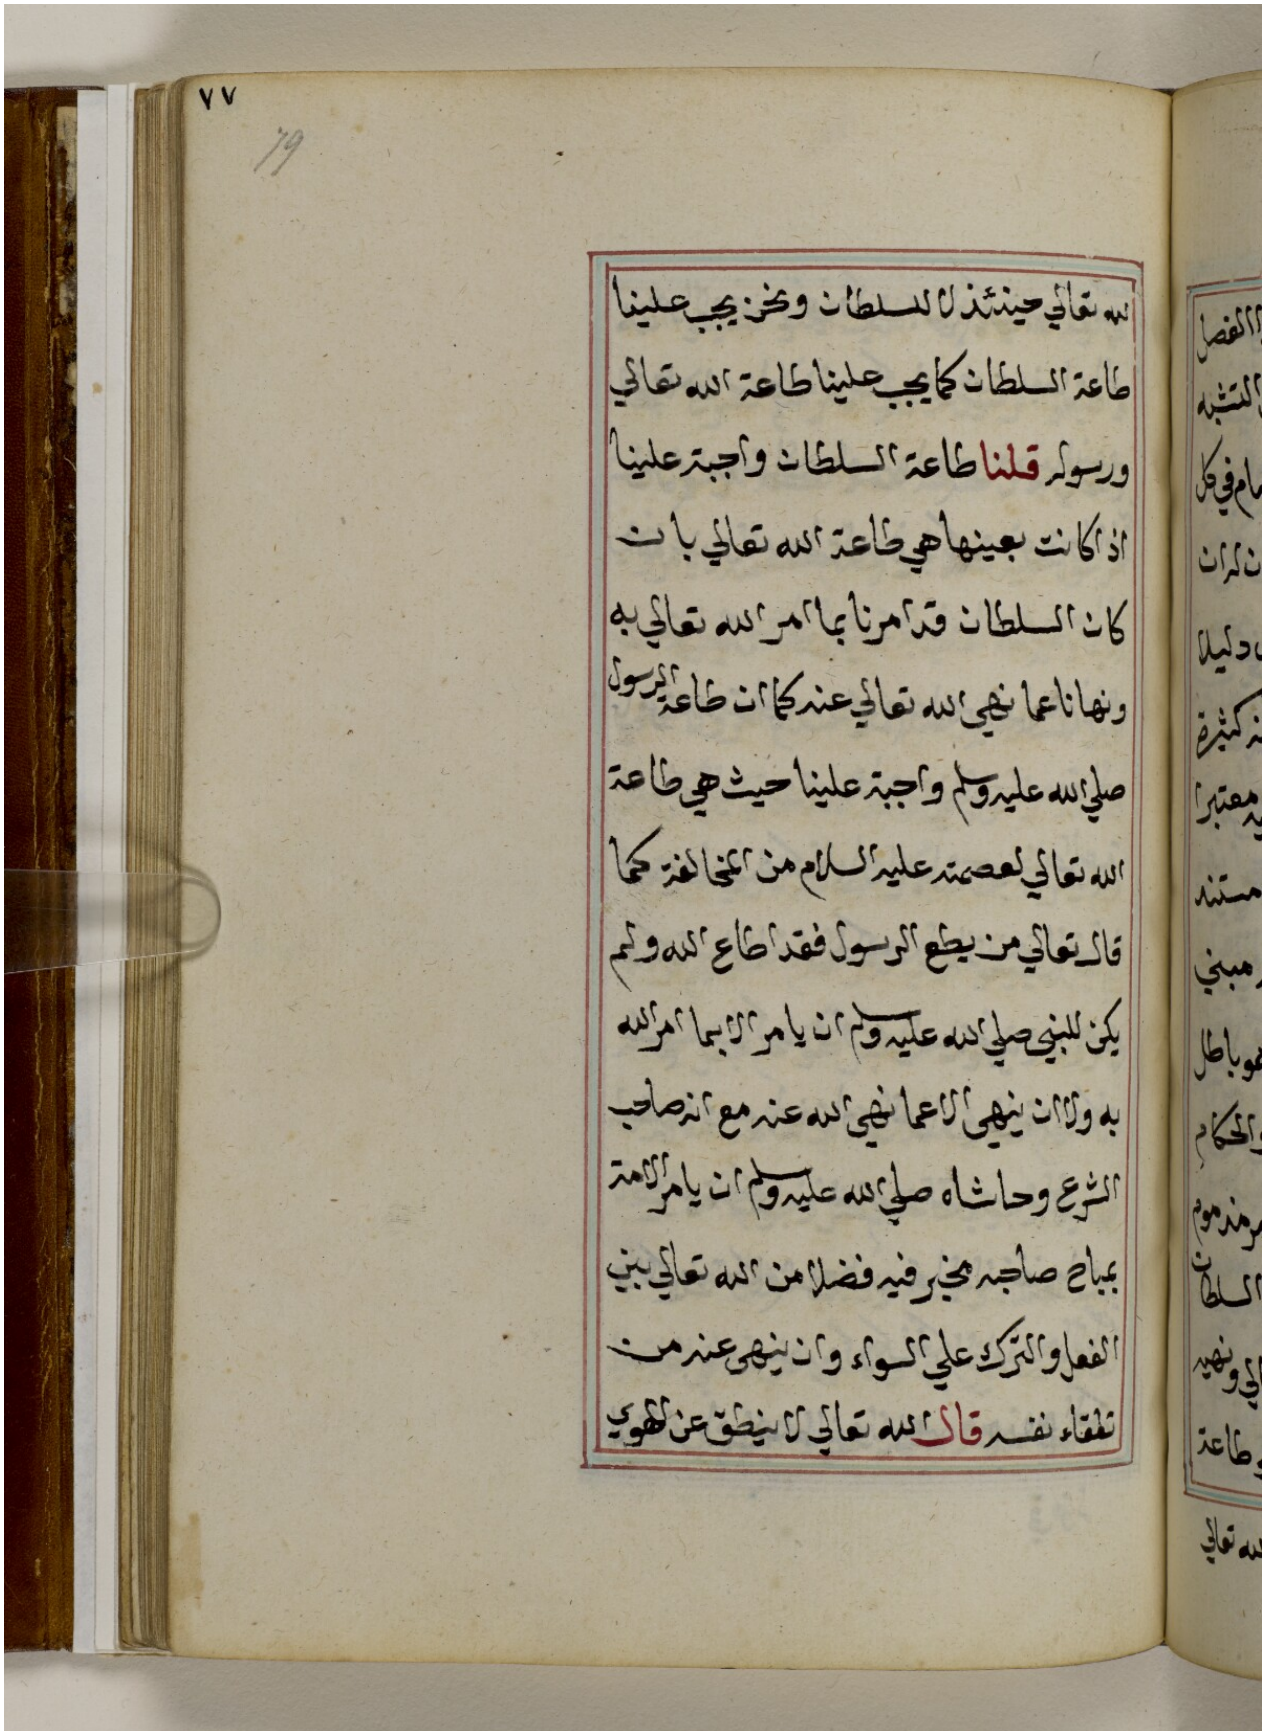 ٧٧
79
لله تعالي حينئذ لا للسلطان ونحن يجب علينا
طاعة السلطان كما يجب علينا طاعة الله تعالي
ورسوله قلنا طاعة السلطان واجبة علينا
اذا كانت بعينها هي طاعة الله تعالي بان
كان السلطان قد امرنا بما امر الله تعالي به
ونهانا عما نهي الله تعالي عنه كما ان طاعة الرسول
صلي الله عليه وسلم واجبة علينا حيث هي طاعة
الله تعالي لعصمته عليه السلام من المخالفة كما
قال تعالي من يطع الرسول فقد اطاع الله ولم
يكن للنبي صلي الله عليه وسلم ان يامر الا بما امر الله
به ولا ان ينهي الا عما نهي الله عنه مع انه صاحب
الشرع وحاشاه صلي الله عليه وسلم ان يامر الامة
بمباح صاحبه مخير فيه فضلا من الله تعالي بين
الفعل والترك علي السواء وان ينهي عنه من
تلقاء نفسه قال الله تعالي لا ينطق عن الهوي
الفصل
التشبه
في كل
دليلا
كثيرة
معتبرا
مستند
مبني
باطل
والحكام
مذموم
السلطان
ونهيه
طاعة
لله تعالي